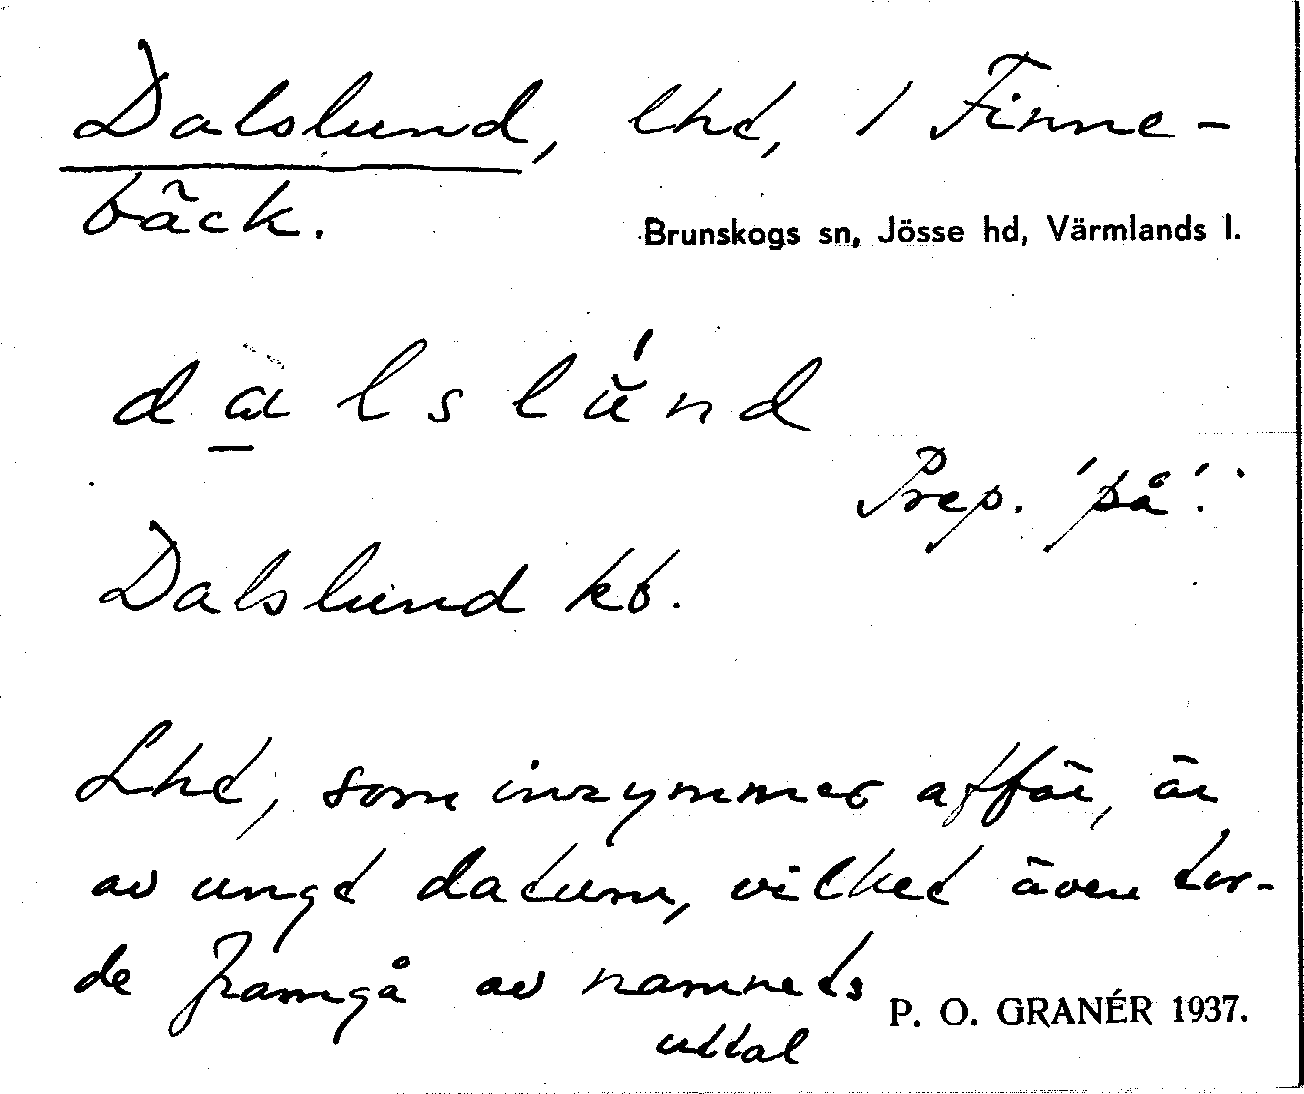 Dalslund, lht, 1 Finne-
bäck.
Brunskogs sn, Jösse hd, Värmlands l.
da̱lslŭ́nd
Prep. 'på'.
Dalslund kb.
Lht, som inrymmer affär, är
av ungt datum, vilket även tor-
de framgå av namnets
uttal
P. O. GRANÉR 1937.